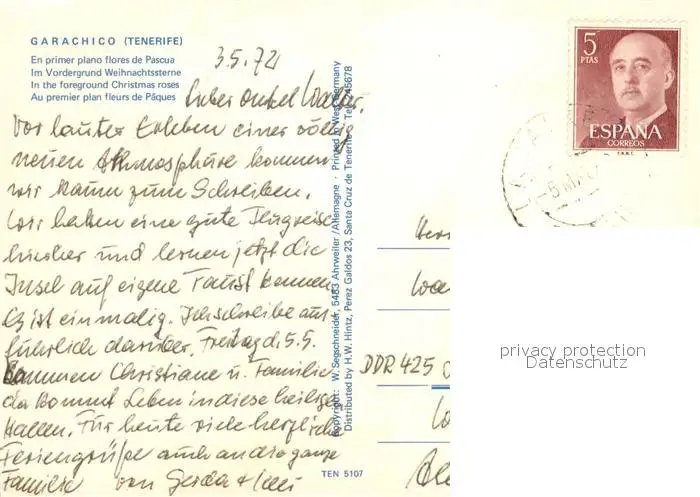 GARACHICO (TENERIFE)
En primer plano flores de Pascua
Im Vordergrund Weihnachtssterne
In the foreground Christmas roses
Au premier plan fleurs de Pâques
3.5.72
Lieber Onkel Walter.
Vor lauter Erleben einer völlig
neuen Athmosphäre kommen
wir kaum zum Schreiben.
Wir haben eine gute Flugreise
hierher und lernen jetzt die
Insel auf eigene Faust kennen
Es ist einmalig. Ich schreibe aus-
führlich darüber. Freitag d. 5.5.
kommen Christiane u. Familie
da kommt Leben in diese heiligen
Hallen. Für heute viele herzliche
Feriengrüße auch an die ganze
Familie von Gerda &
Copyright: W. Segschneider, 5483 Ahrweiler/Allemagne · Printed in West Germany
Distributed by H.W. Hintz, Perez Galdos 23, Santa Cruz de Tenerife
TEN 5107
5
PTAS
ESPAÑA
CORREOS
DDR 425
privacy protection
Datenschutz